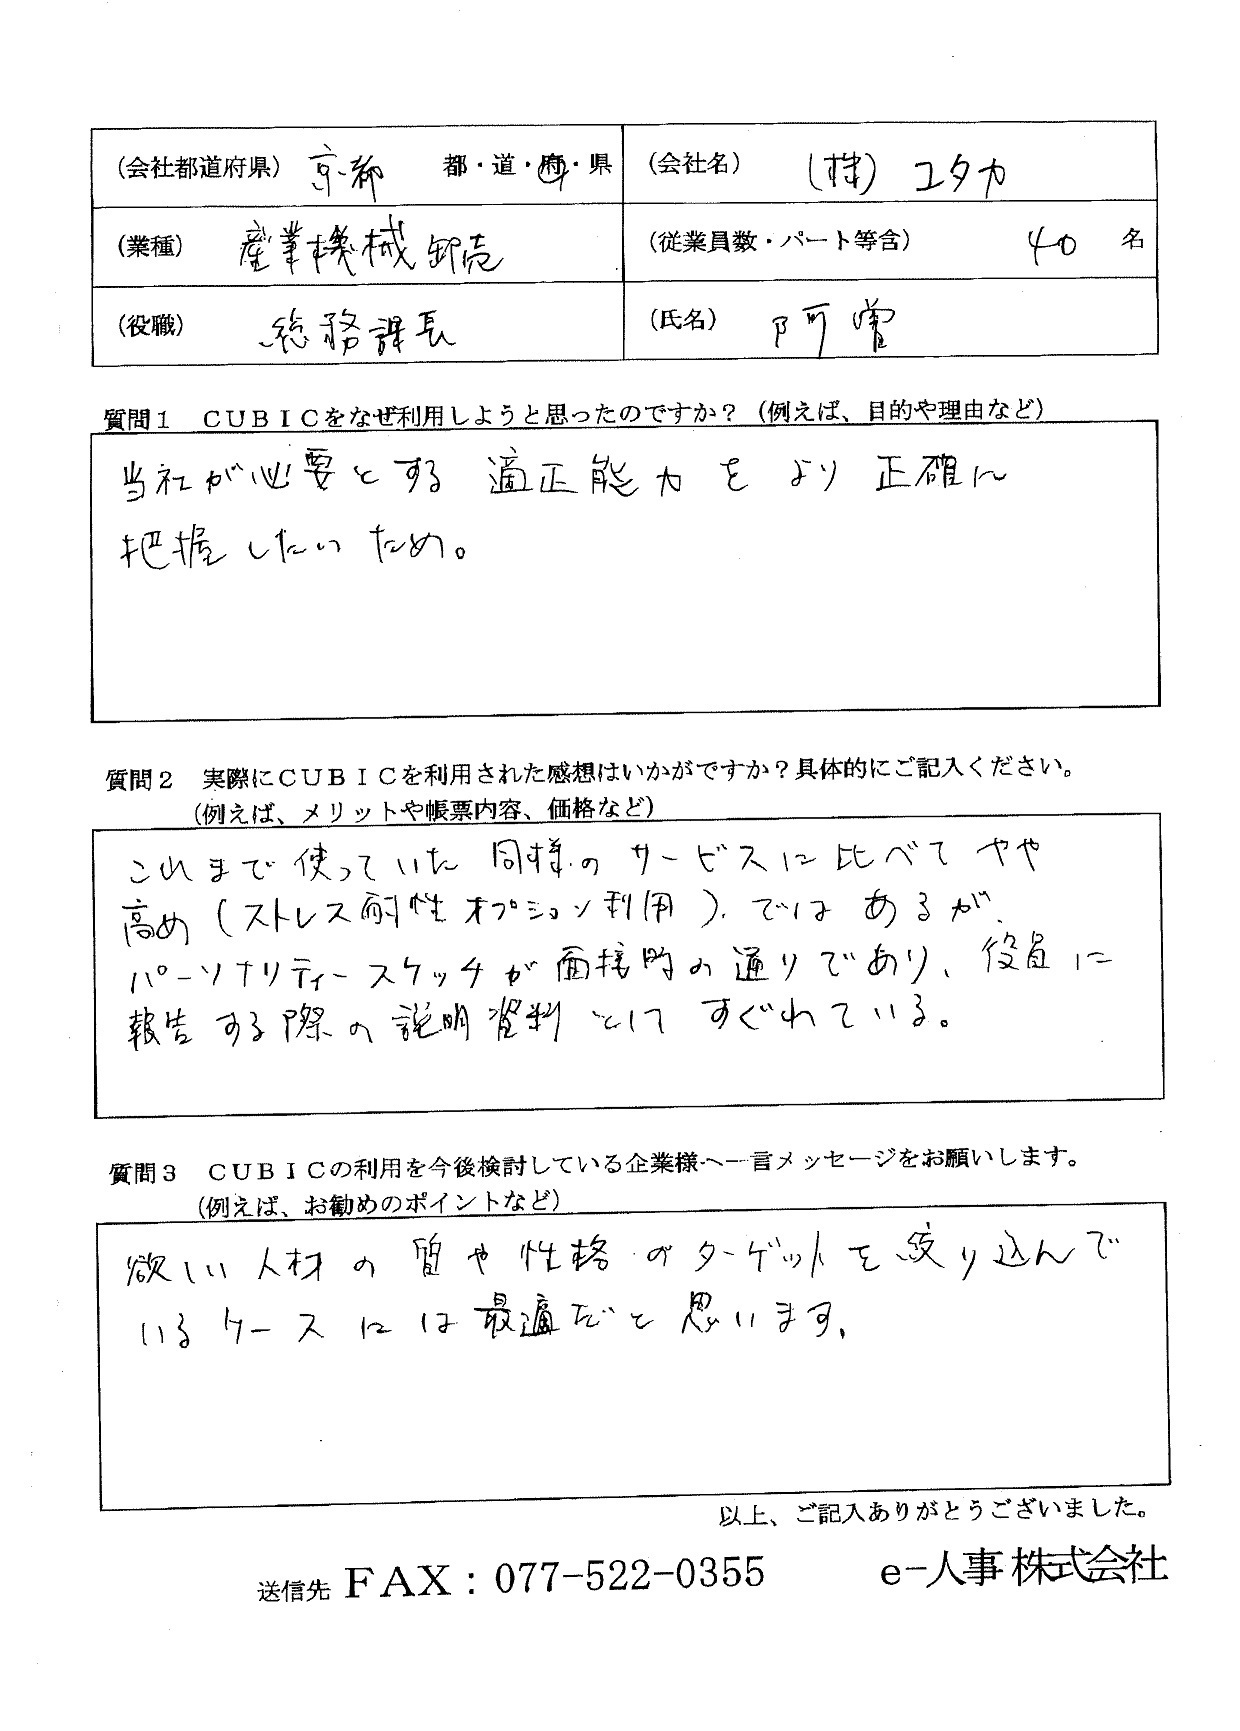 (会社都道府県) 京都 都・道・府・県 (会社名) (株) ユタカ
(業種) 産業機械卸売 (従業員数・パート等含) 40 名
(役職) 総務課長 (氏名) 阿
質問1 CUBICをなぜ利用しようと思ったのですか？(例えば、目的や理由など)
当社が必要とする適正能力をより正確に
把握したいため。
質問2 実際にCUBICを利用された感想はいかがですか？具体的にご記入ください。
(例えば、メリットや帳票内容、価格など)
これまで使っていた同様のサービスに比べてやや
高め(ストレス耐性オプション利用)ではあるが、
パーソナリティースケッチが面接時の通りであり、役員に
報告する際の説明資料としてすぐれている。
質問3 CUBICの利用を今後検討している企業様へ一言メッセージをお願いします。
(例えば、お勧めのポイントなど)
欲しい人材の質や性格のターゲットを絞り込んで
いるケースには最適だと思います。
以上、ご記入ありがとうございました。
送信先 FAX：077-522-0355 e-人事株式会社